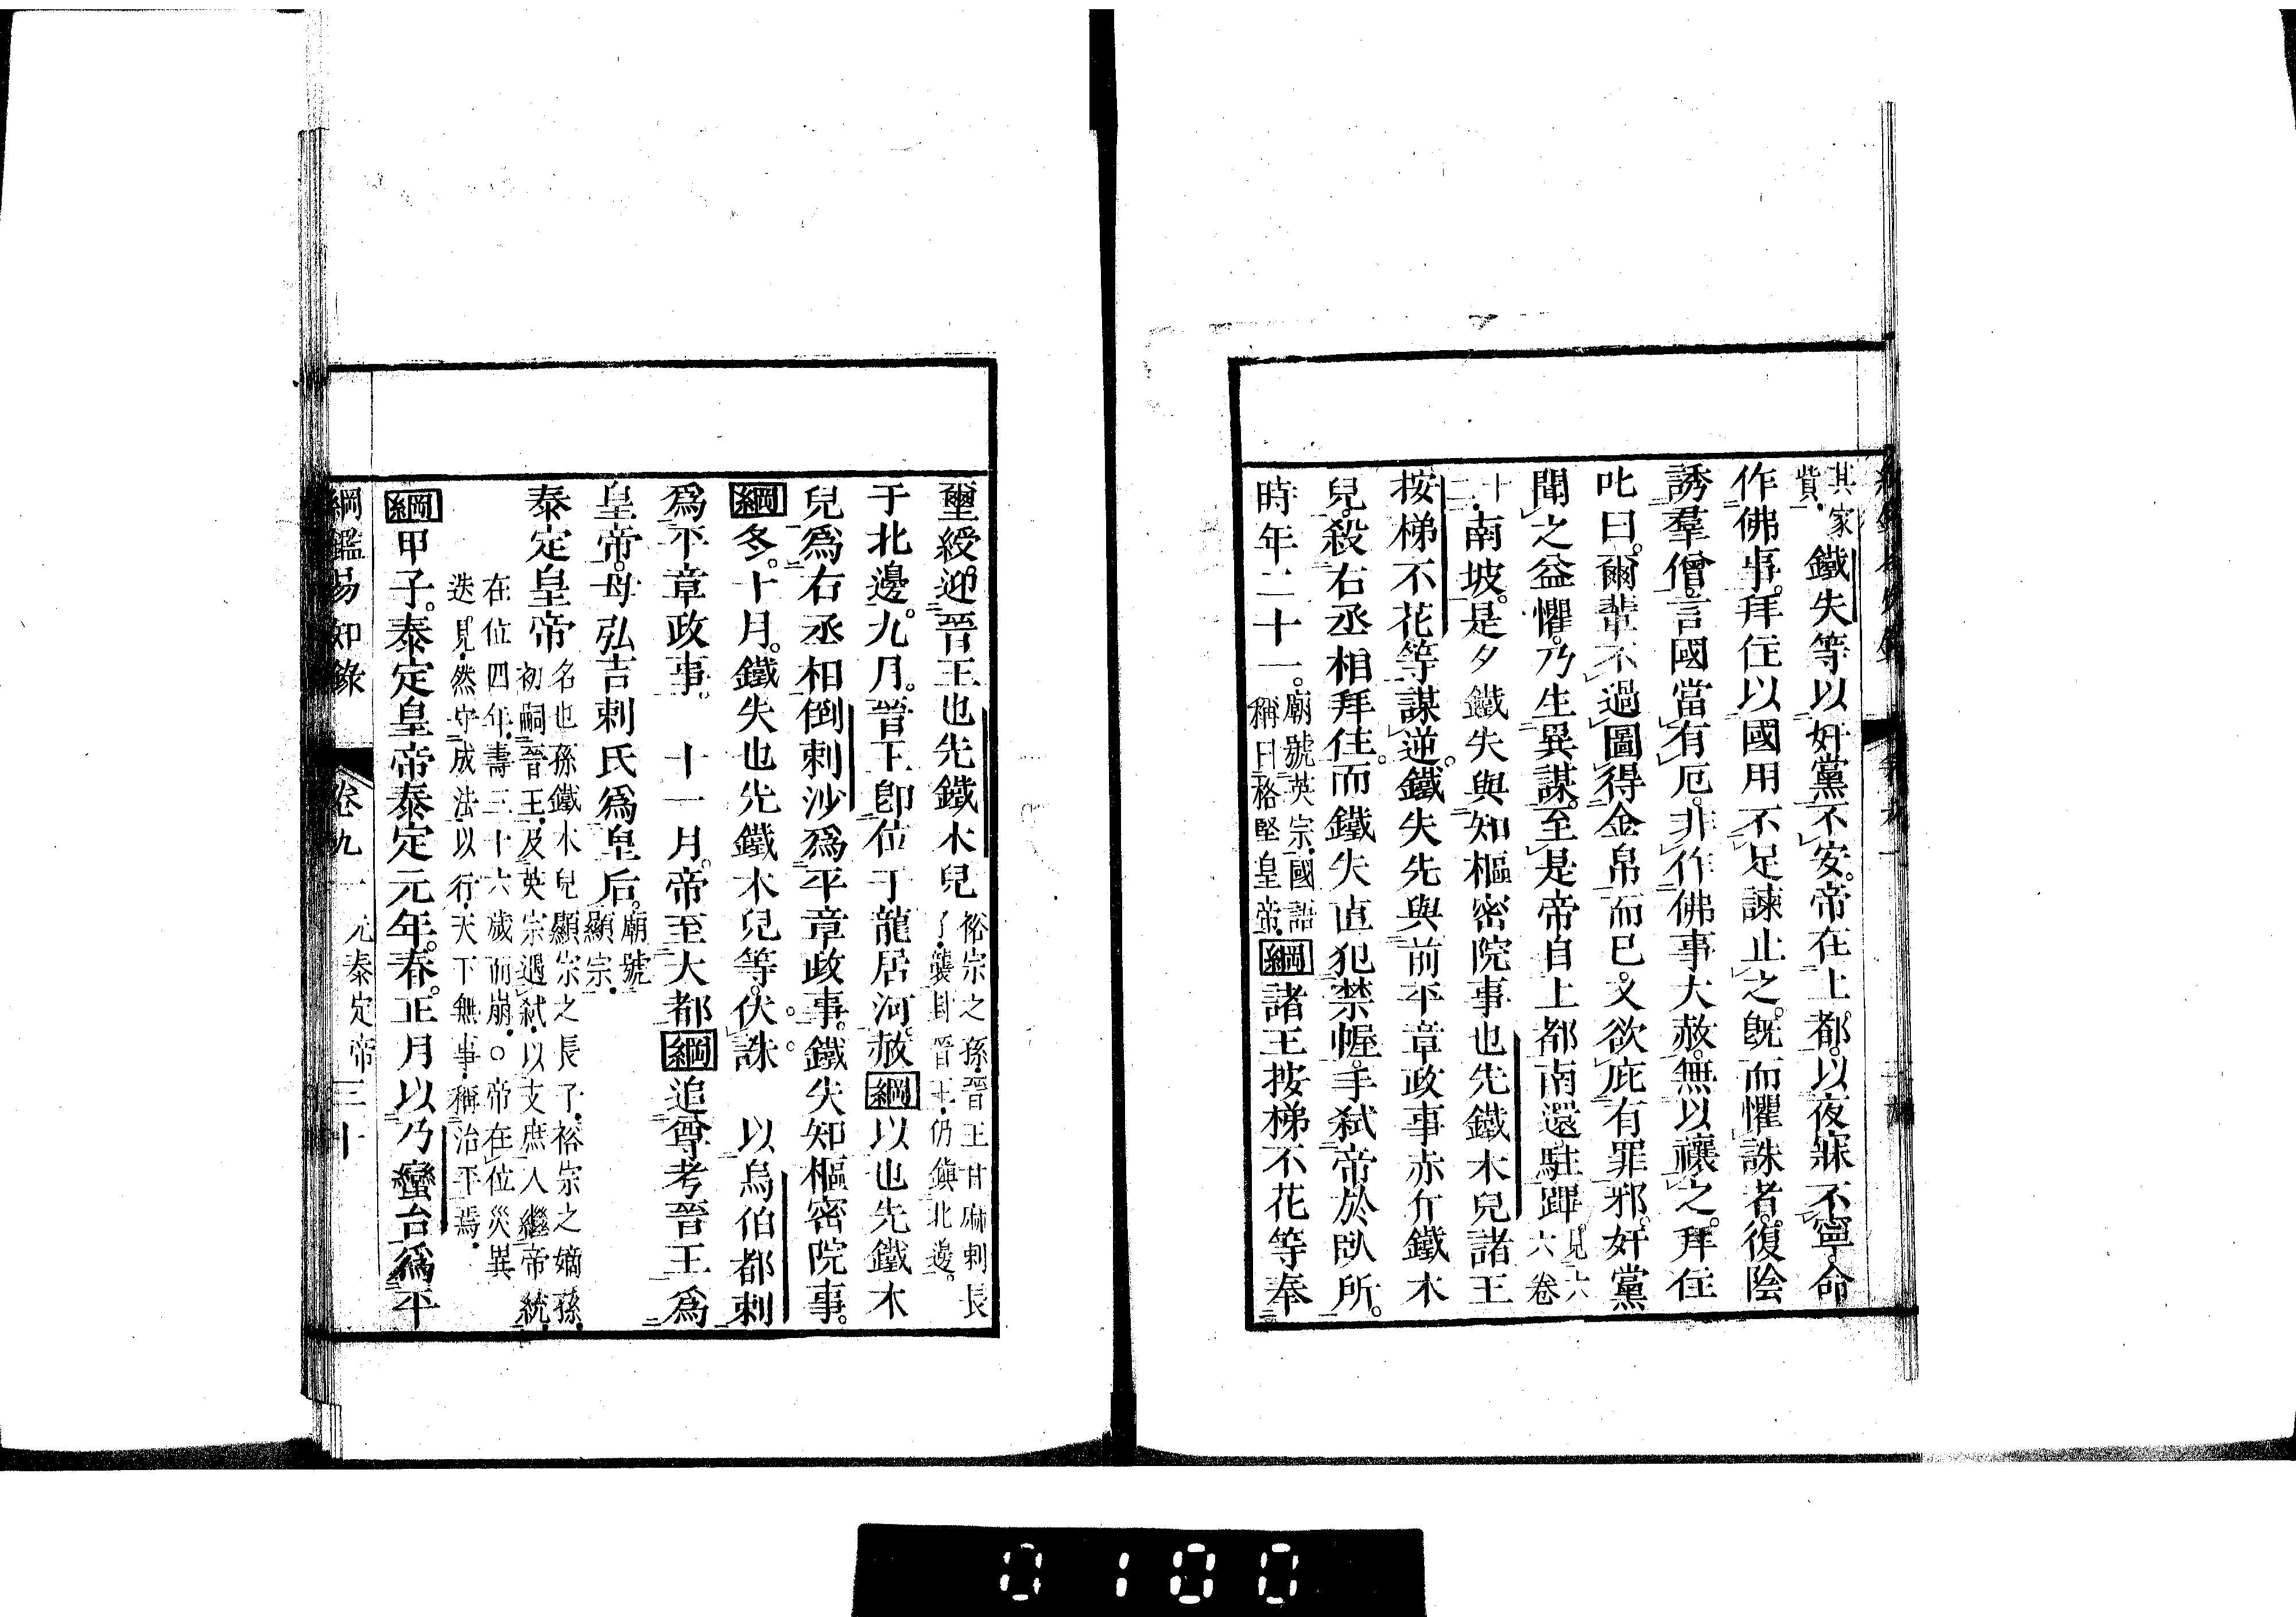 其家
貲鐵失等以奸黨不安帝在上都以夜寐不寧命
作佛事拜住以國用不足諫止之旣而懼誅者復陰
誘羣僧言國當有厄非作佛事大赦無以禳之拜住
叱曰爾輩不過圖得金帛而已又欲庇有罪邪奸黨
聞之益懼乃生異謀至是帝自上都南還駐蹕見六六卷
十二南坡是夕鐵失與知樞密院事也先鐵木兒諸王
按梯不花等謀逆鐵失先與前平章政事赤斤鐵木
兒殺右丞相拜住而鐵失直犯禁幄手弑帝於臥所
時年二十一廟號英宗國語稱曰格堅皇帝綱諸王按梯不花等奉
璽綬迎晉王也先鐵木兒裕宗之孫晉王甘麻剌長子襲封晉王仍鎭北邊
于北邊九月晉王卽位于龍居河赦綱以也先鐵木
兒爲右丞相倒剌沙爲平章政事鐵失知樞密院事
綱冬十月鐵失也先鐵木兒等伏誅 以烏伯都剌
爲平章政事 十一月帝至大都綱追尊考晉王爲
皇帝母弘吉剌氏爲皇后廟號顯宗
泰定皇帝名也孫鐵木兒顯宗之長子裕宗之嫡孫初嗣晉王及英宗遇弑以支庶入繼帝統
在位四年壽三十六歲而崩○帝在位災異
迭見然守成法以行天下無事稱治平焉
綱甲子泰定皇帝泰定元年春正月以乃蠻台爲平
綱鑑易知錄 卷九一 元泰定帝 三十
0100